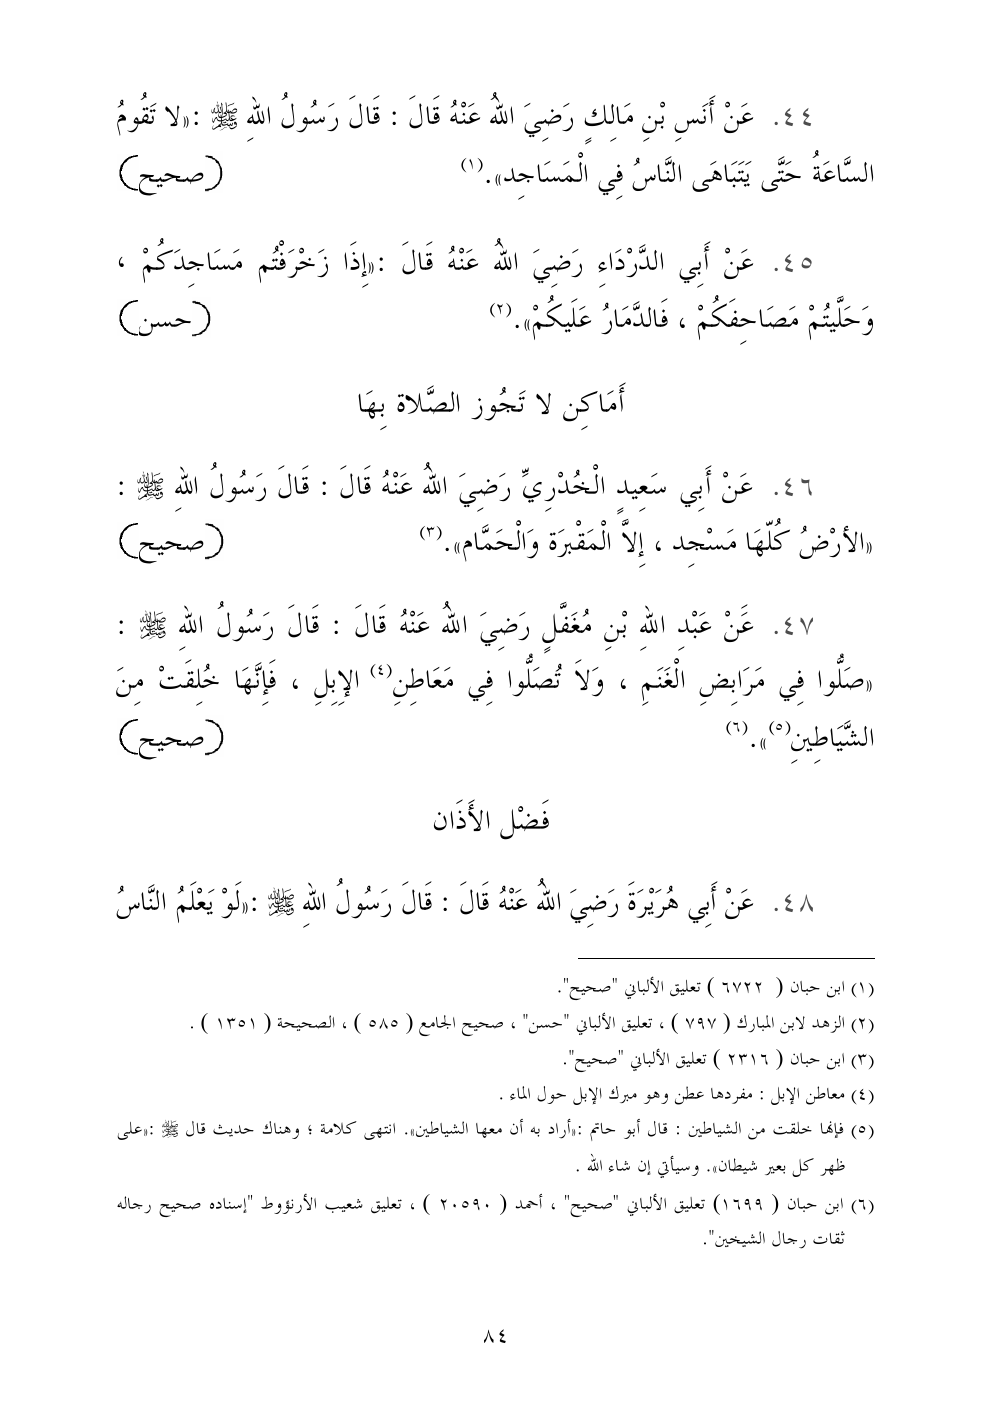 ٤٤. عَنْ أَنَسِ بْنِ مَالِكٍ رَضِيَ اللهُ عَنْهُ قَالَ : قَالَ رَسُولُ اللهِ ﷺ :«لا تَقُومُ
السَّاعَةُ حَتَّى يَتَبَاهَى النَّاسُ فِي الْمَسَاجِد».(١) (صحيح)
٤٥. عَنْ أَبِي الدَّرْدَاءِ رَضِيَ اللهُ عَنْهُ قَالَ :«إِذَا زَخْرَفْتُم مَسَاجِدَكُمْ ،
وَحَلَّيتُمْ مَصَاحِفَكُمْ ، فَالدَّمَارُ عَلَيكُمْ».(٢) (حسن)
أَمَاكِن لا تَجُوز الصَّلاة بِهَا
٤٦. عَنْ أَبِي سَعِيدٍ الْخُدْرِيِّ رَضِيَ اللهُ عَنْهُ قَالَ : قَالَ رَسُولُ اللهِ ﷺ :
«الأرْضُ كُلّهَا مَسْجِد ، إِلاَّ الْمَقْبرَة وَالْحَمَّام».(٣) (صحيح)
٤٧. عََنْ عَبْدِ اللهِ بْنِ مُغَفَّلٍ رَضِيَ اللهُ عَنْهُ قَالَ : قَالَ رَسُولُ اللهِ ﷺ :
«صَلُّوا فِي مَرَابِضِ الْغَنَمِ ، وَلاَ تُصَلُّوا فِي مَعَاطِنِ(٤) الإِبِلِ ، فَإِنَّهَا خُلِقَتْ مِنَ
الشَّيَاطِينِ(٥)».(٦) (صحيح)
فَضْل الأَذَان
٤٨. عَنْ أَبِي هُرَيْرَةَ رَضِيَ اللهُ عَنْهُ قَالَ : قَالَ رَسُولُ اللهِ ﷺ :«لَوْ يَعْلَمُ النَّاسُ
(١) ابن حبان ( ٦٧٢٢ ) تعليق الألباني "صحيح".
(٢) الزهد لابن المبارك ( ٧٩٧ ) ، تعليق الألباني "حسن" ، صحيح الجامع ( ٥٨٥ ) ، الصحيحة ( ١٣٥١ ) .
(٣) ابن حبان ( ٢٣١٦ ) تعليق الألباني "صحيح".
(٤) معاطن الإبل : مفردها عطن وهو مبرك الإبل حول الماء .
(٥) فإنها خلقت من الشياطين : قال أبو حاتم :«أراد به أن معها الشياطين». انتهى كلامة ؛ وهناك حديث قال ﷺ :«على
ظهر كل بعير شيطان». وسيأتي إن شاء الله .
(٦) ابن حبان ( ١٦٩٩) تعليق الألباني "صحيح" ، أحمد ( ٢٠٥٩٠ ) ، تعليق شعيب الأرنؤوط "إسناده صحيح رجاله
ثقات رجال الشيخين".
٨٤